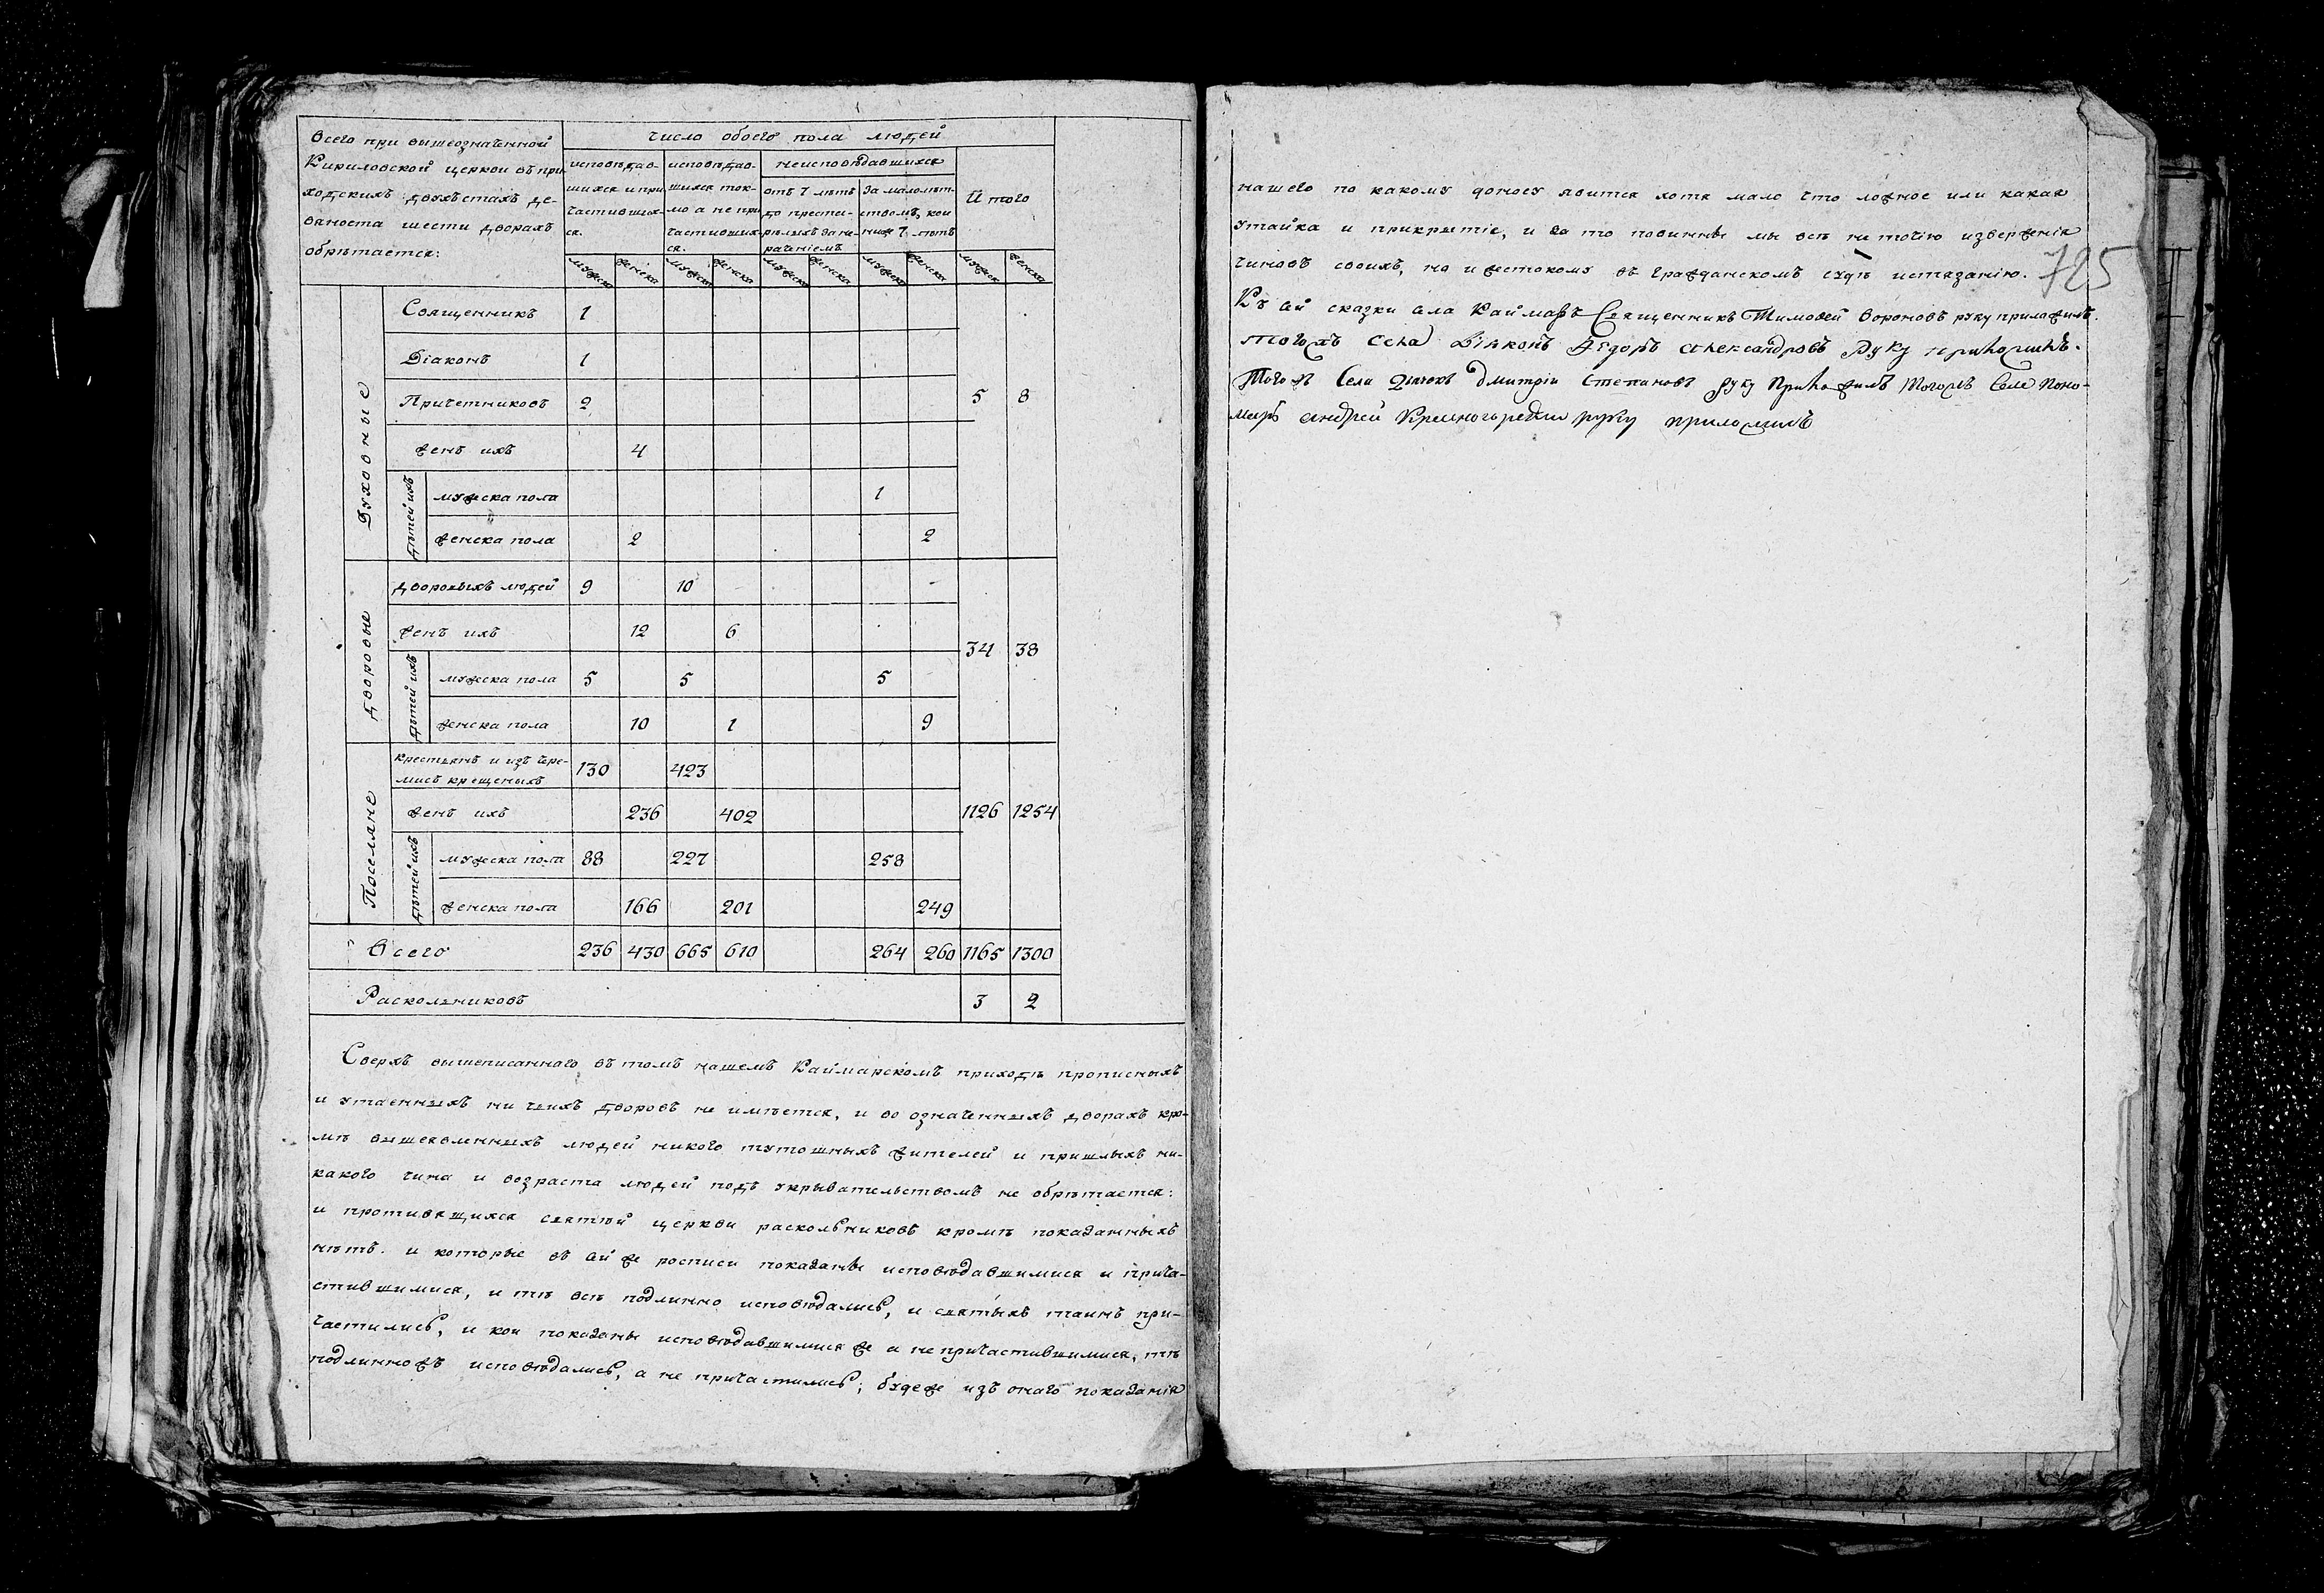 Всего при вышеозначенной
Кириловской церкви въ при
ходскихъ двухъстахъ де-
вяноста шести дворахъ
обрѣтается:
число обоего пола людей
исповѣдав-
шихся и при
частивших-
ся.
исповѣдав-
шихся ток-
мо а не при
частивших-
ся.
неисповѣдавшихся
отъ 7 лѣтъ
до преста-
рѣлыхъ за не-
раченіемъ
за малолѣт-
ствомъ, кои
ниже 7 лѣтъ
И того
мужска женска мужска женска мужска женска мужска женска мужска женска
Духовные
Священникъ 1
Діаконъ 1
Причетниковъ 2 5 8
женъ ихъ 4
дѣтей ихъ
мужска пола 1
женска пола 2 2
Дворовые
дворовыхъ людей 9 10
женъ ихъ 12 6
34 38
дѣтей ихъ
мужска пола 5 5 5
женска пола 10 1 9
Поселяне
крестьянъ и изъ чере-
мисъ крещеныхъ 130 423
женъ ихъ 236 402 1126 1254
дѣтей ихъ
мужска пола 88 227 258
женска пола 166 201 249
Всего 236 430 665 610 264 260 1165 1300
Раскольниковъ 3 2
Сверхъ вышеписанного въ томъ нашемъ Каймарскомъ приходѣ прописныхъ
и утаенныхъ ни чьихъ дворовъ не имѣется, и во означенныхъ дворахъ кро-
мѣ вышеявленныхъ людей никого тутошныхъ жителей и пришлыхъ ни-
какого чина и возраста людей подъ укрывательствомъ не обрѣтается:
и противящихся святѣй церкви раскольниковъ кромѣ показанныхъ
нѣтъ. и которые въ сей же росписи показаны исповѣдавшимися и прича-
стившимися, и тѣ всѣ подлинно исповѣдались, и святыхъ таинъ при-
частились, и кои показаны исповѣдавшимися же а не причастившимися, тѣ
подлинножъ исповѣдались, а не причастились; будеже изъ онаго показанія
нашего по какому доносу явится хотя мало что ложное или какая
утайка и прикрытіе, и за то повинны мы всѣ не точію изверженія
чиновъ своихъ, но и жестокому въ гражданскомъ судѣ истязанію.
725
Къ сей сказки села Каймаръ Священникъ Тимофей Вороновъ руку приложилъ.
тогожъ села Діяконъ Ѳедоръ Александровъ руку приложилъ.
Того жъ Села Дьячокъ Дмитрій Степановъ руку приложилъ Тогожъ Села Поно-
марь Андрей руку приложилъ